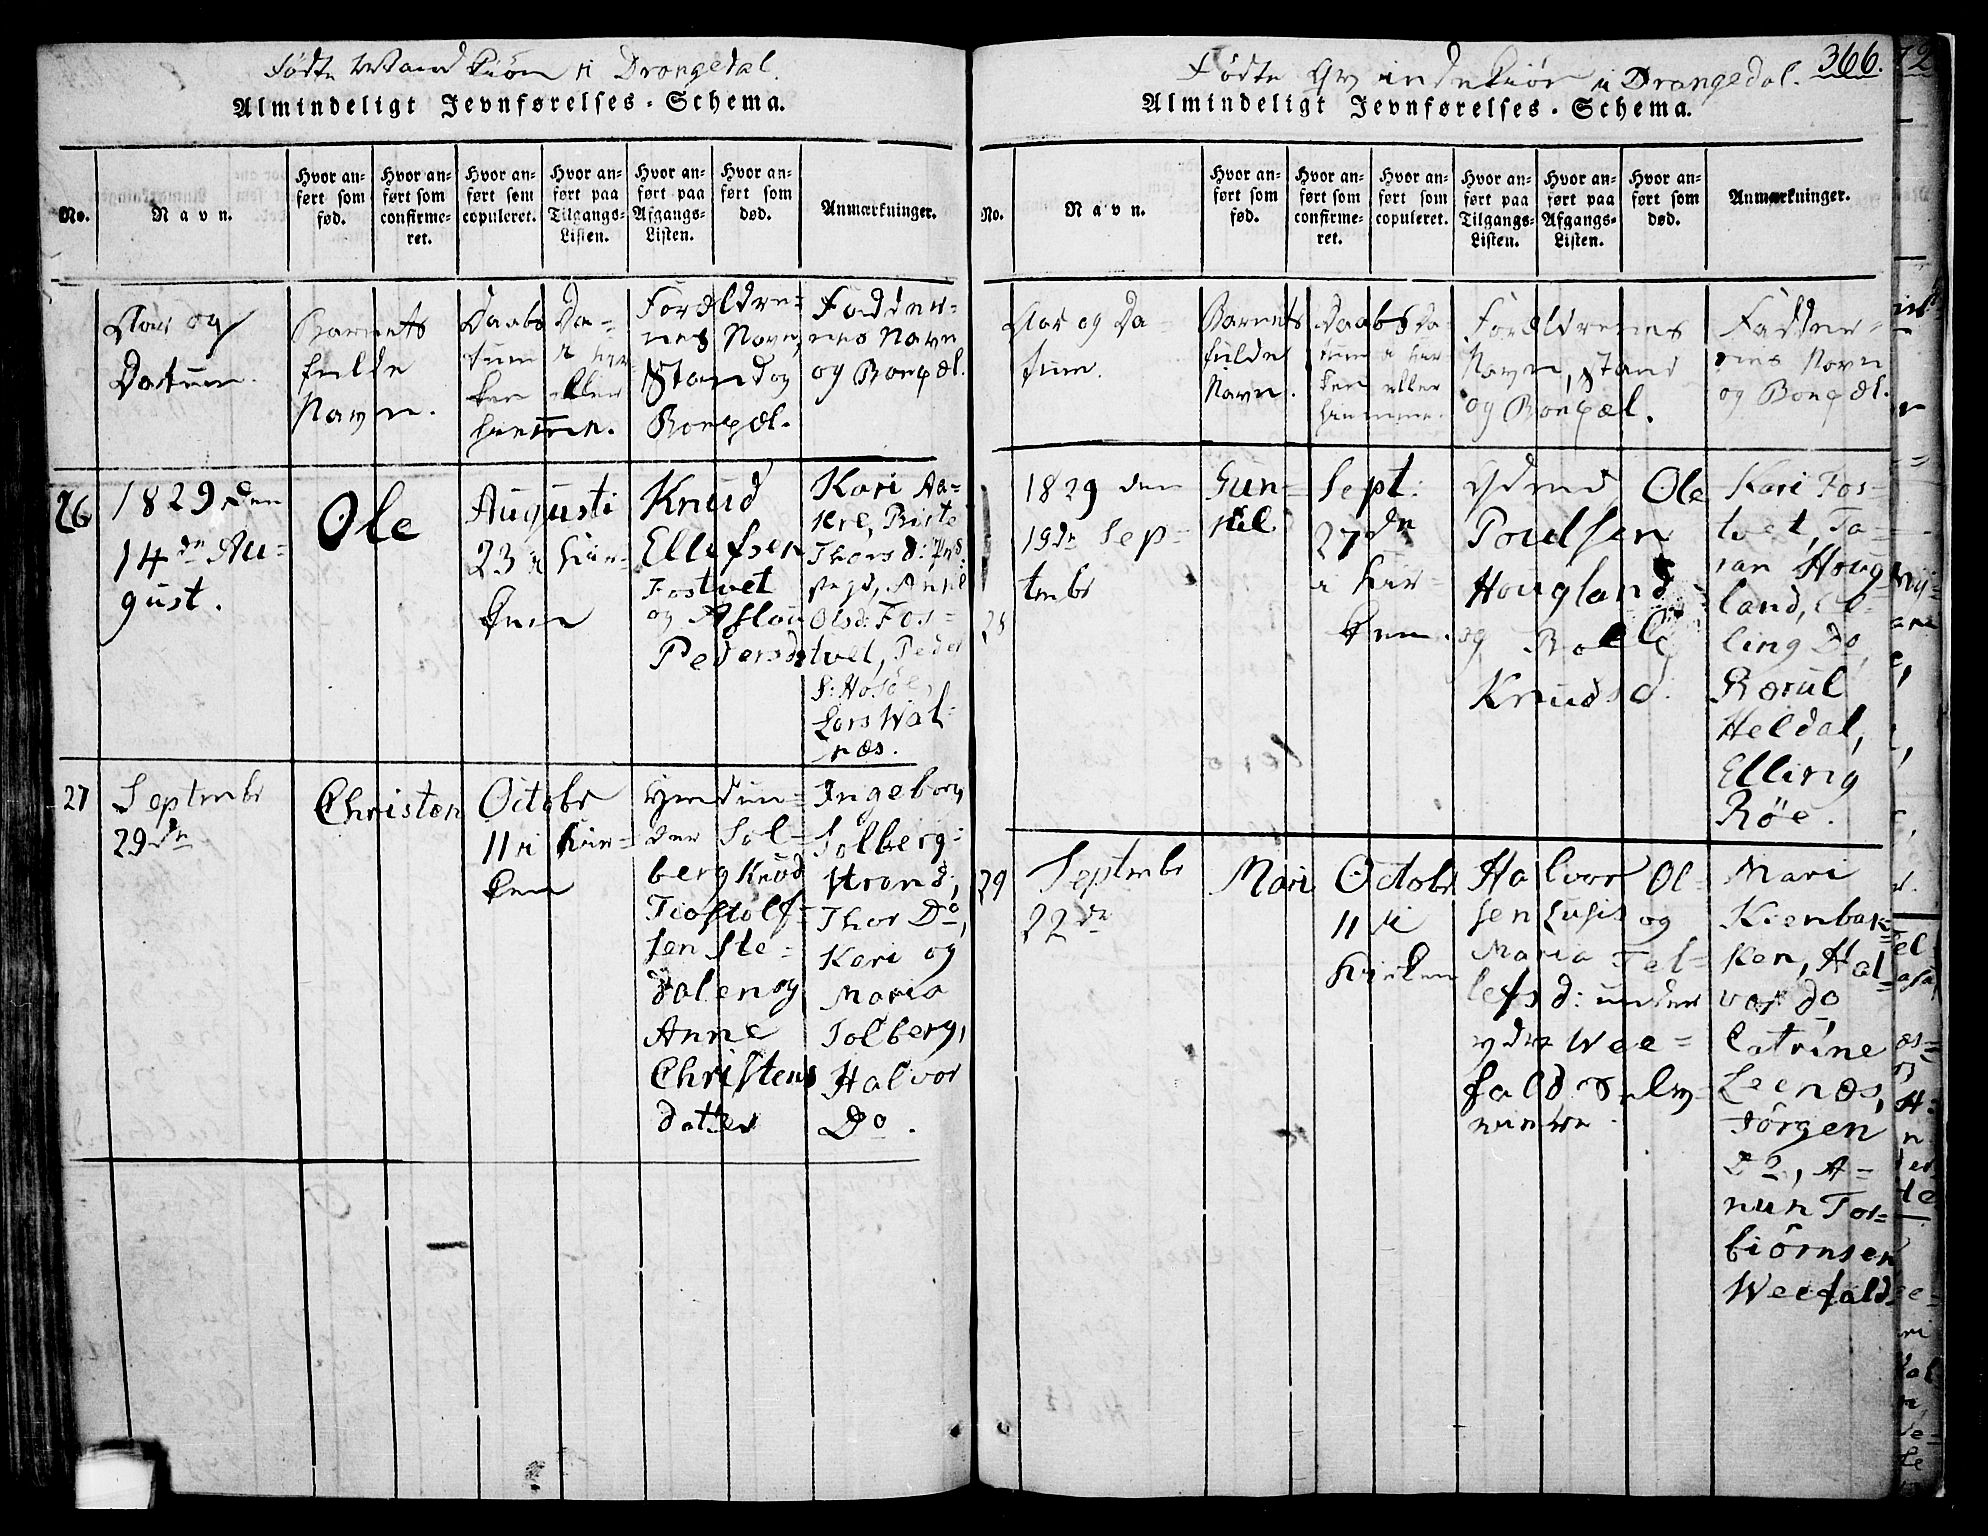 Fødte Mandkiøn i Drangedal.
Almindeligt Jevnførelses-Schema.
No.
Navn.
Hvor an-
ført som
fød.
Hvor an-
ført som
confirme-
ret.
Hvor an-
ført som
copuleret.
Hvor an-
ført paa
Tilgangs-
Listen.
Hvor an-
ført paa
Afgangs-
Listen.
Hvor an-
ført som
død.
Anmærkninger.
Aar og
Datum.
Barnets
fulde
Navn.
Daabs Da-
tum i Kir-
ken eller
hiemme.
Forældre-
nes Navn,
Stand og
Bopæl.
Fadder-
nes Navn
og Bopæl.
26
1829 den
14de Au-
gust.
Ole
Augusti
23 i Kir-
ken
Knud
Ellefsen
Fostvet
og Aslau
Pedersd
Kari Aa-
Birte
Thorsd:
Olsd: Fos-
tvet, Peder
Lars Wal-
næs.
27
Septembr
29de
Christen
Octobr
11 i Kir-
ken
der Sol-
berg Knud
Tiostolf-
sen Ste-
dalen og
Anne
Christens
datter
Ingeborg
Solberg-
strand,
Thor Do,
Keri og
Maria
Solberg,
Halvor
Do.
366.
Fødte Qvindekiøn i Drangedal.
Almindeligt Jevnførelses-Schema.
No.
Navn.
Hvor an-
ført som
fød.
Hvor an-
ført som
confirme-
ret.
Hvor an-
ført som
copuleret.
Hvor an-
ført paa
Tilgangs-
Listen.
Hvor an-
ført paa
Afgangs-
Listen.
Hvor an-
ført som
død.
Anmærkninger.
Aar og Da-
tum.
Barnets
fulde
Navn.
Daabs Da-
tum i Kir-
ken eller
hiemme.
Forældrenes
Navn, Stand
og Bopæl.
Fadder-
nes Navn
og Bopæl.
28
1829 den
19de Sep-
tembr
Gun-
Sept:
27de
i Kir-
ken.
Ole
Poulsen
Hougland
og
Knudsd
Kari Fos-
tvet, Ta-
ran Houg-
land, El-
ling Do,
Heldal,
Elling
Röe.
29
Septembr
22de
Mari
Octobr
11 i
Kirken
Halvor Ol-
sen og
Maria Tel-
lefsd: under
ydre Wee-
fald
Mari
Kienbak-
ken, Hal-
vor do
Catrine
Leenæs,
Jörgen
Do, A-
nun Tor-
biörnsen
Weefald